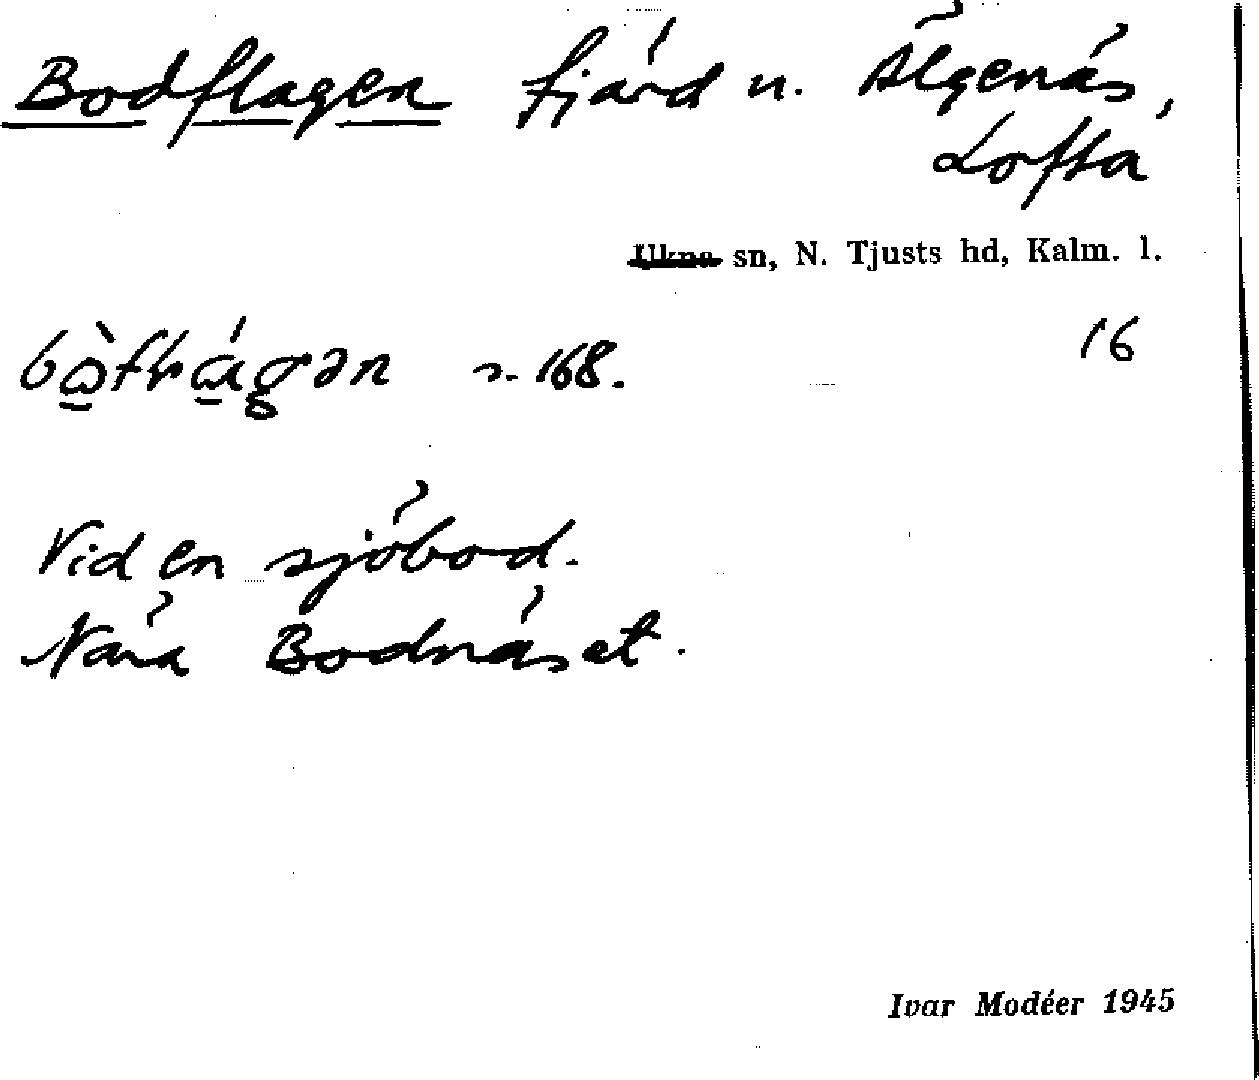 Bodflagen fjärd n. Älgenäs,
Lofta
Ukna sn, N. Tjusts hd, Kalm. l.
16
s. 168.
Vid en sjöbod.
Nära Bodnäset.
Ivar Modéer 1945